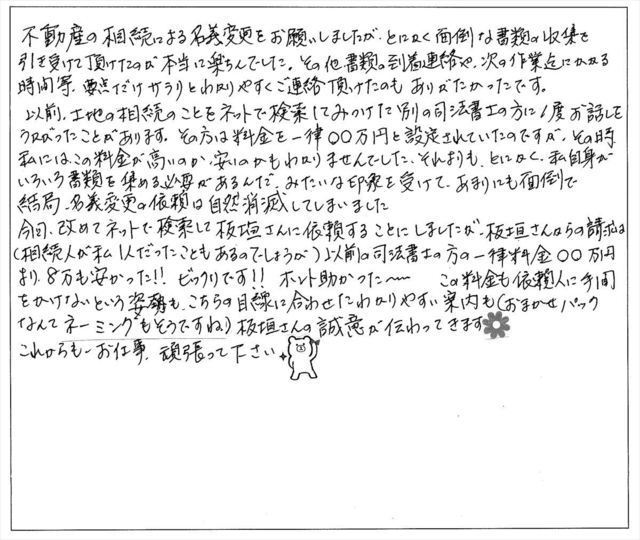 不動産の相続による名義変更をお願いしましたが、とにかく面倒な書類の収集を
引き受けて頂けたのが本当に楽ちんでした。その他書類の到着連絡や、次の作業迄にかかる
時間等、要点だけサラリとわかりやすくご連絡頂けたのもありがたかったです。
以前、土地の相続のことをネットで検索してみつけた別の司法書士の方に1度お話しを
うかがったことがあります。その方は料金を一律〇〇万円と設定されていたのですが、その時
私にはこの料金が高いのか、安いのかもわかりませんでした、それよりも、とにかく、私自身が
いろいろ書類を集める必要があるんだ、みたいな印象を受けて、あまりにも面倒で
結局、名義変更の依頼は自然消滅してしまいました
今回、改めてネットで検索して板垣さんに依頼することにしましたが、板垣さんからの請求は
(相続人が私1人だったこともあるのでしょうが)以前の司法書士の方の一律料金〇〇万円
より、8万も安かった!!ビックリです!!ホント助かった〜 この料金も依頼人に手間
をかけないという姿勢も、こちらの目線に合わせたわかりやすい案内も(おまかせパック
なんてネーミングもそうですね)板垣さんの誠意が伝わってきます
これからもお仕事、頑張って下さい